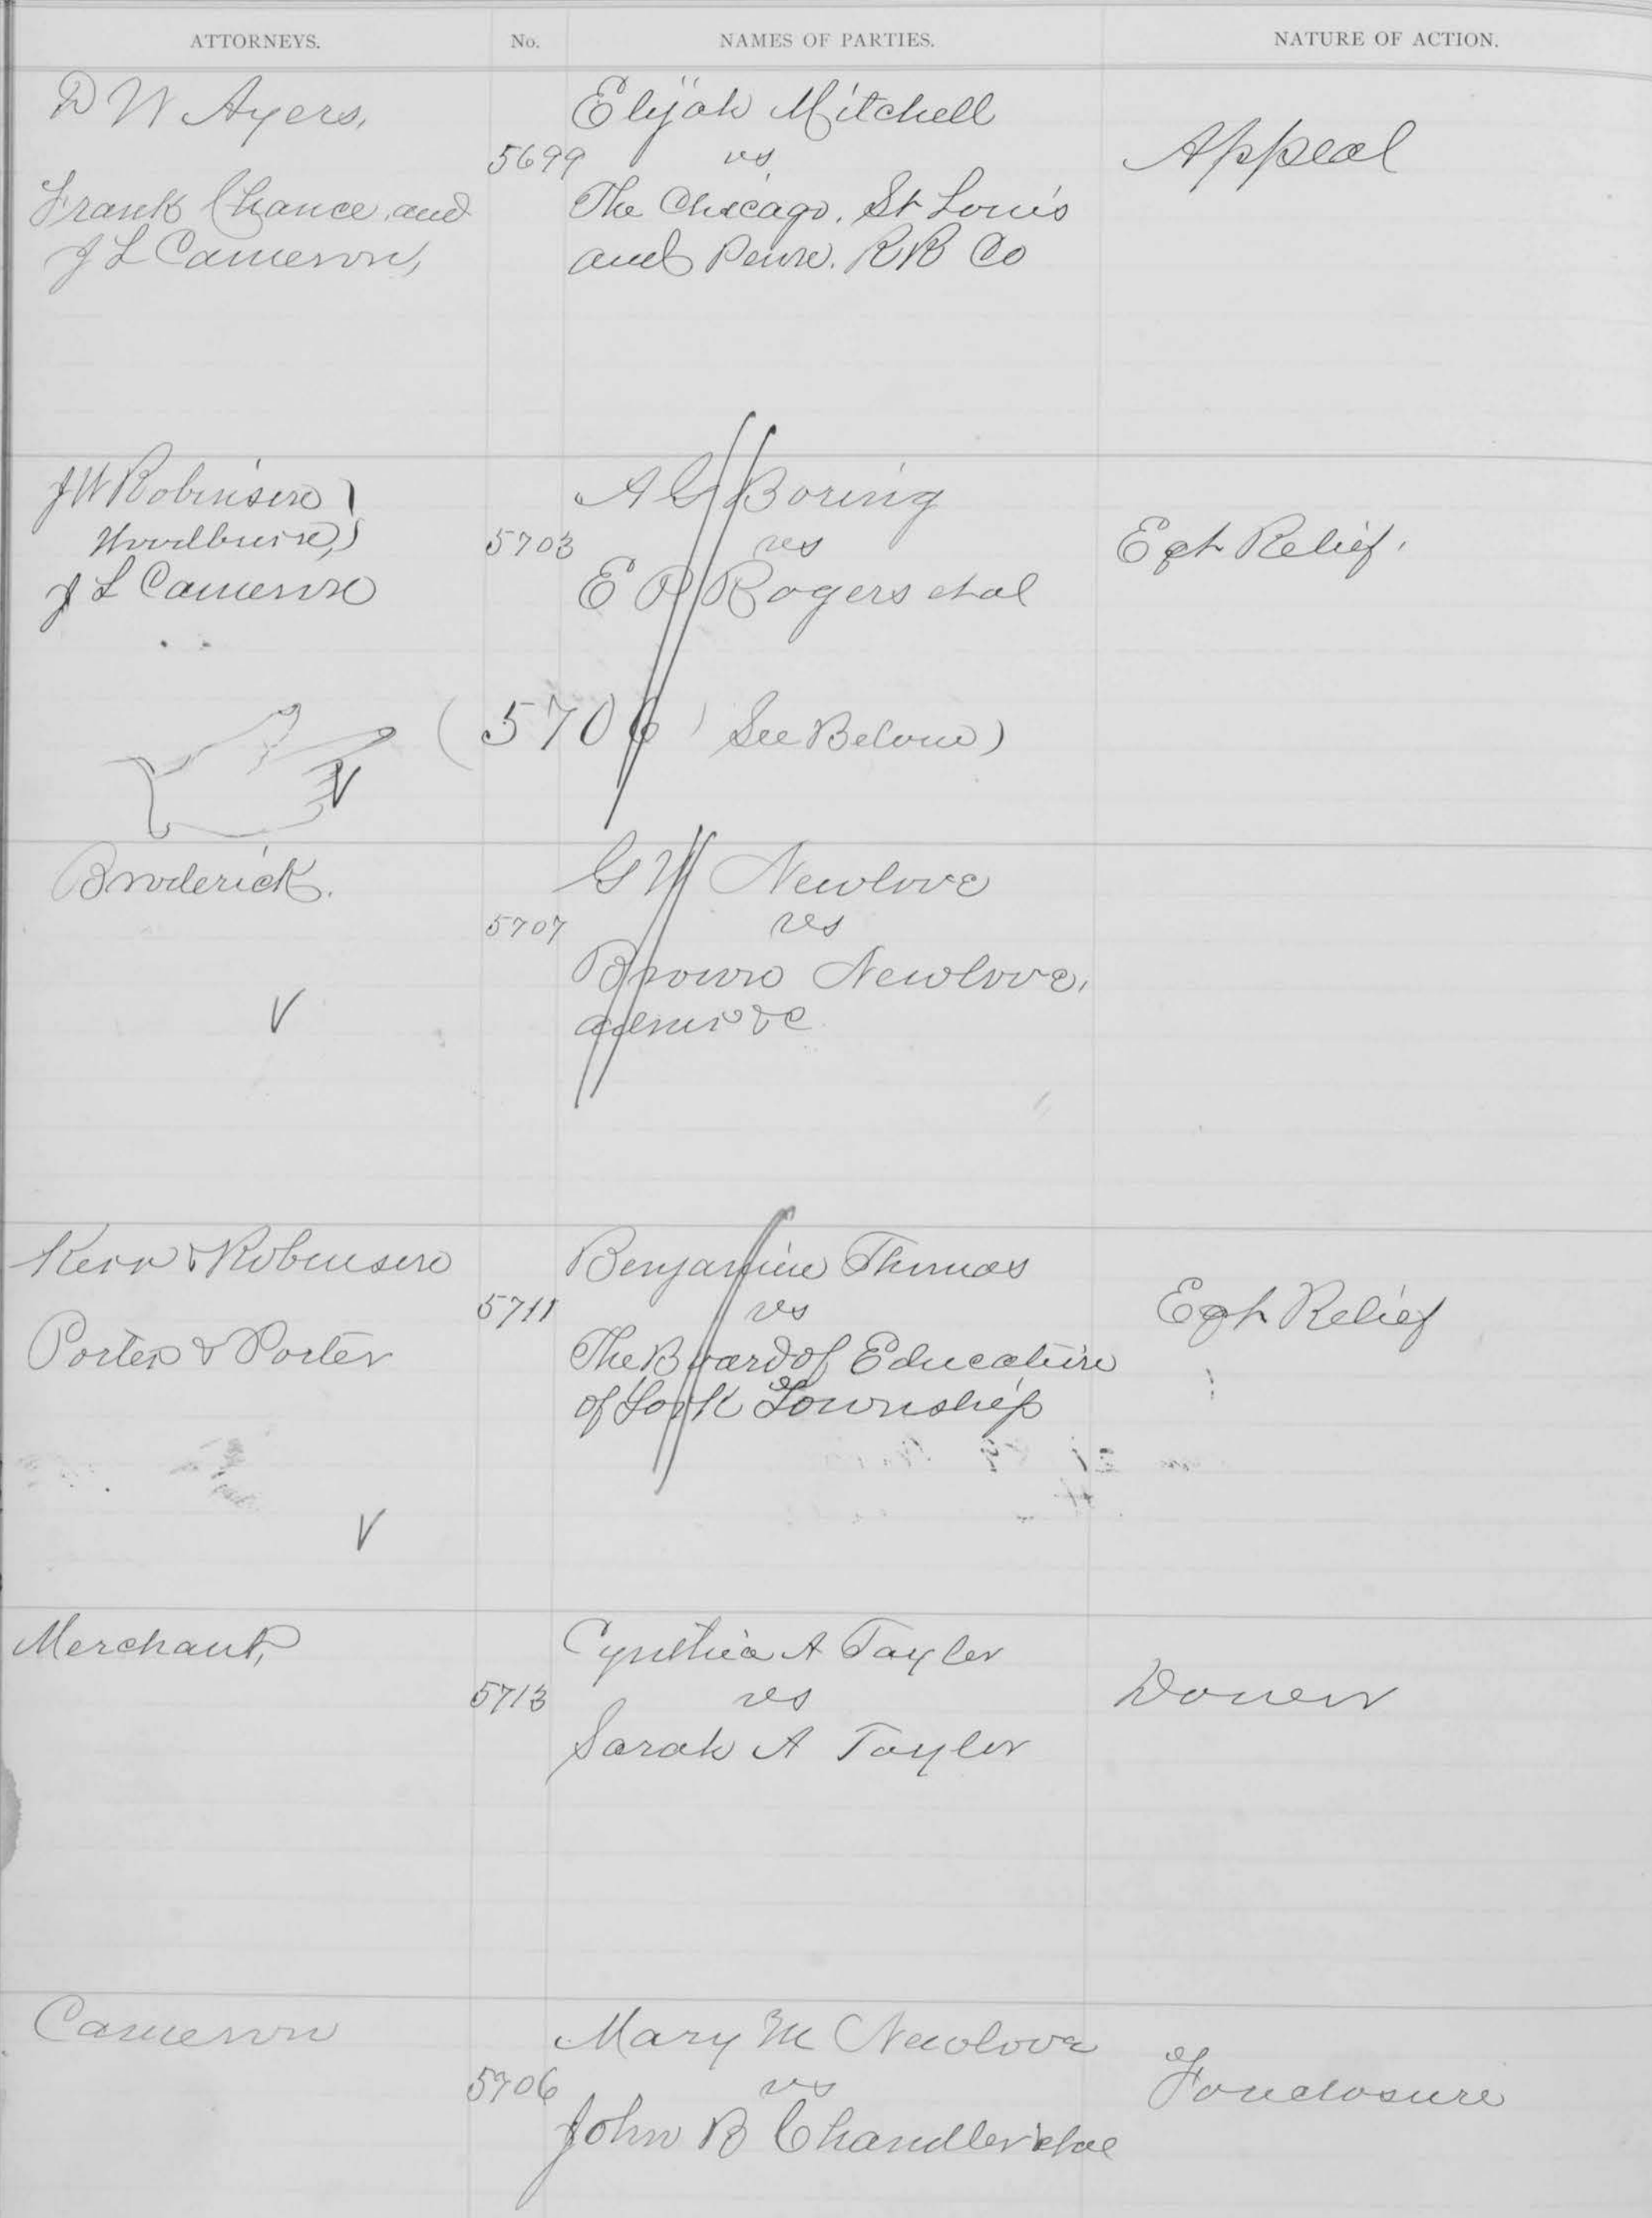 ATTORNEYS. No. NAMES OF PARTIES. NATURE OF ACTION.
D W Ayers,
Frank Chance and
J L Cameron,
5699
Elijah Mitchell
vs
The Chicago, St Louis
and Penn. RR Co
Appeal
J W Robinson )
Woodburn, )
J L Cameron
5703
A G Boring
vs
E P Rogers et al
Eqt Relief.
( 5706 ) See Below )
Broderick.
5707
G W Newlove
vs
Brown Newlove,
admr &c
Kerr & Robinson
Porter & Porter
5711
Benjamin Thomas
vs
The Board of Education
of York Township
Eqt Relief
Merchant,
5713
Cynthia A Tayler
vs
Sarah A Tayler
Dower
Cameron
5706
Mary M Newlove
vs
John B Chandler et al
Foreclosure